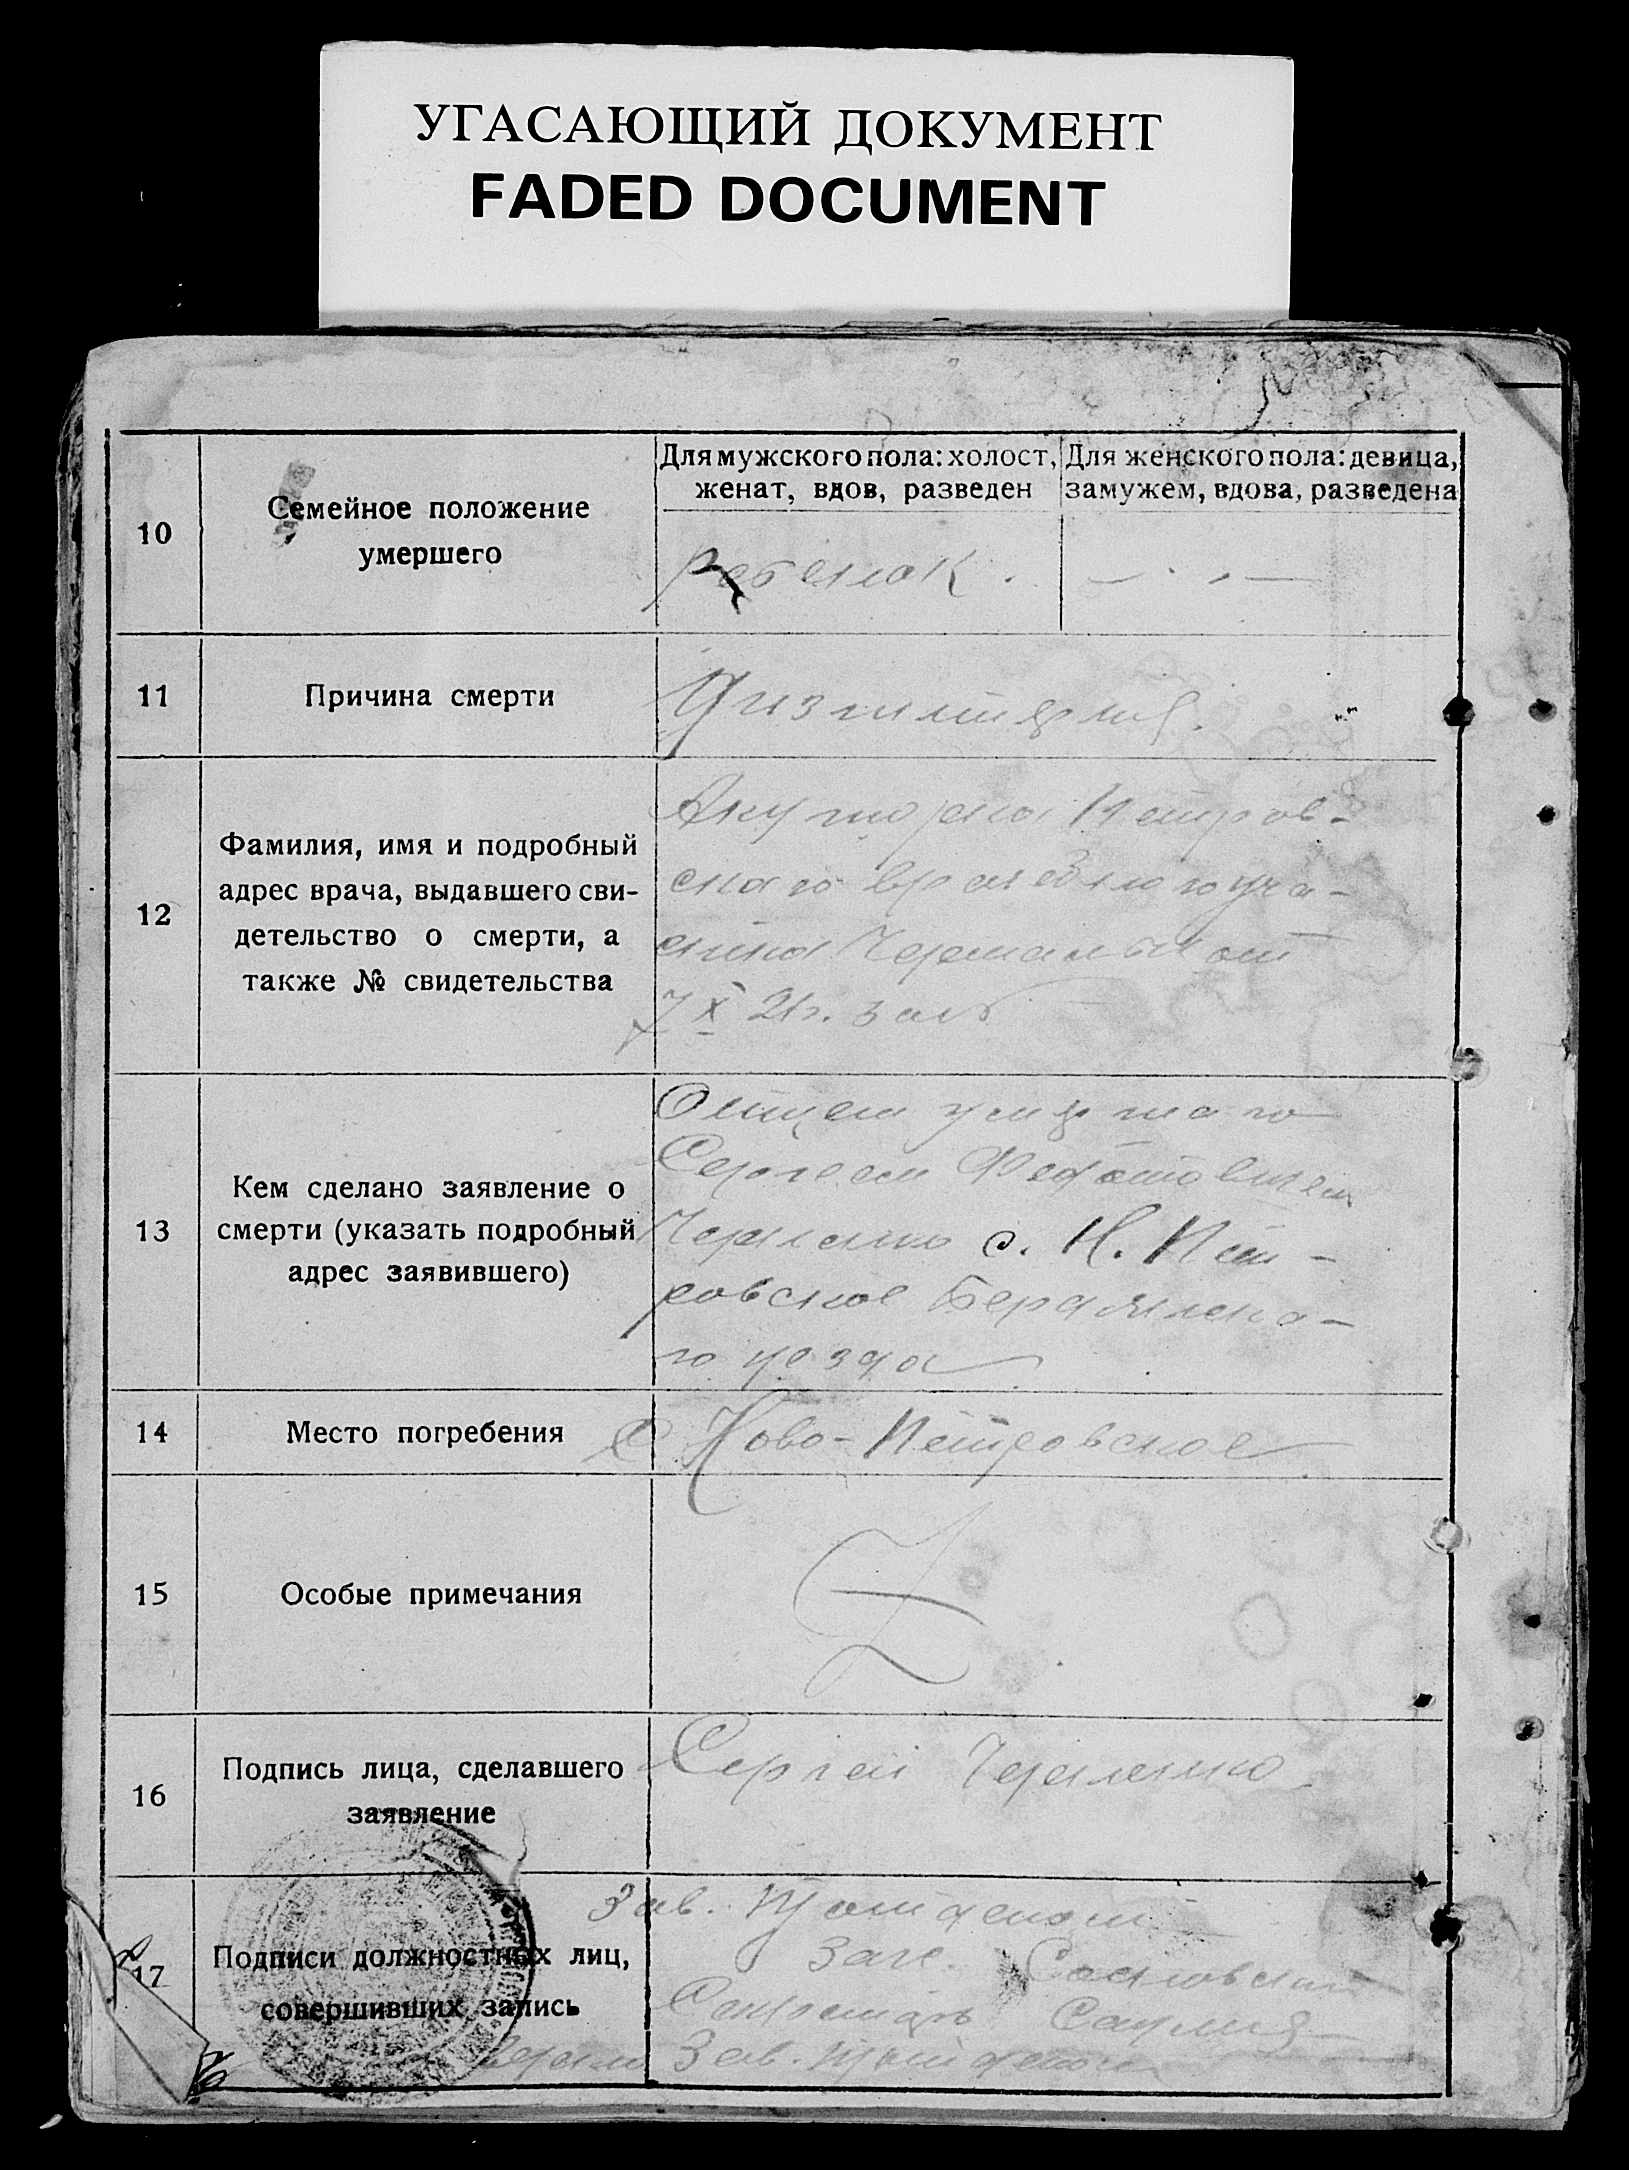 УГАСАЮЩИЙ ДОКУМЕНТ
FADED DOCUMENT
10
Семейное положение
умершего
Для мужского пола: холост,
женат, вдов, разведен
Для женского пола: девица,
замужем, вдова, разведена
ребенок.
11
Причина смерти
Дизентерия.
12
Фамилия, имя и подробный
адрес врача, выдавшего сви-
детельство о смерти, а
также № свидетельства
Акушерка Петров-
скаго врачебнаго уча-
стка от
7 X 21г. за №
13
Кем сделано заявление о
смерти (указать подробный
адрес заявившего)
Отцем умершаго
Сергеем Федотовичем
с. Н. Пет-
ровское Бердянска-
го уезда
14
Место погребения
С Ново-Петровское
15
Особые примечания
16
Подпись лица, сделавшего
заявление
Сергей
17
Подписи должностных лиц,
совершивших запись
Зав.
Секретарь
Зав.